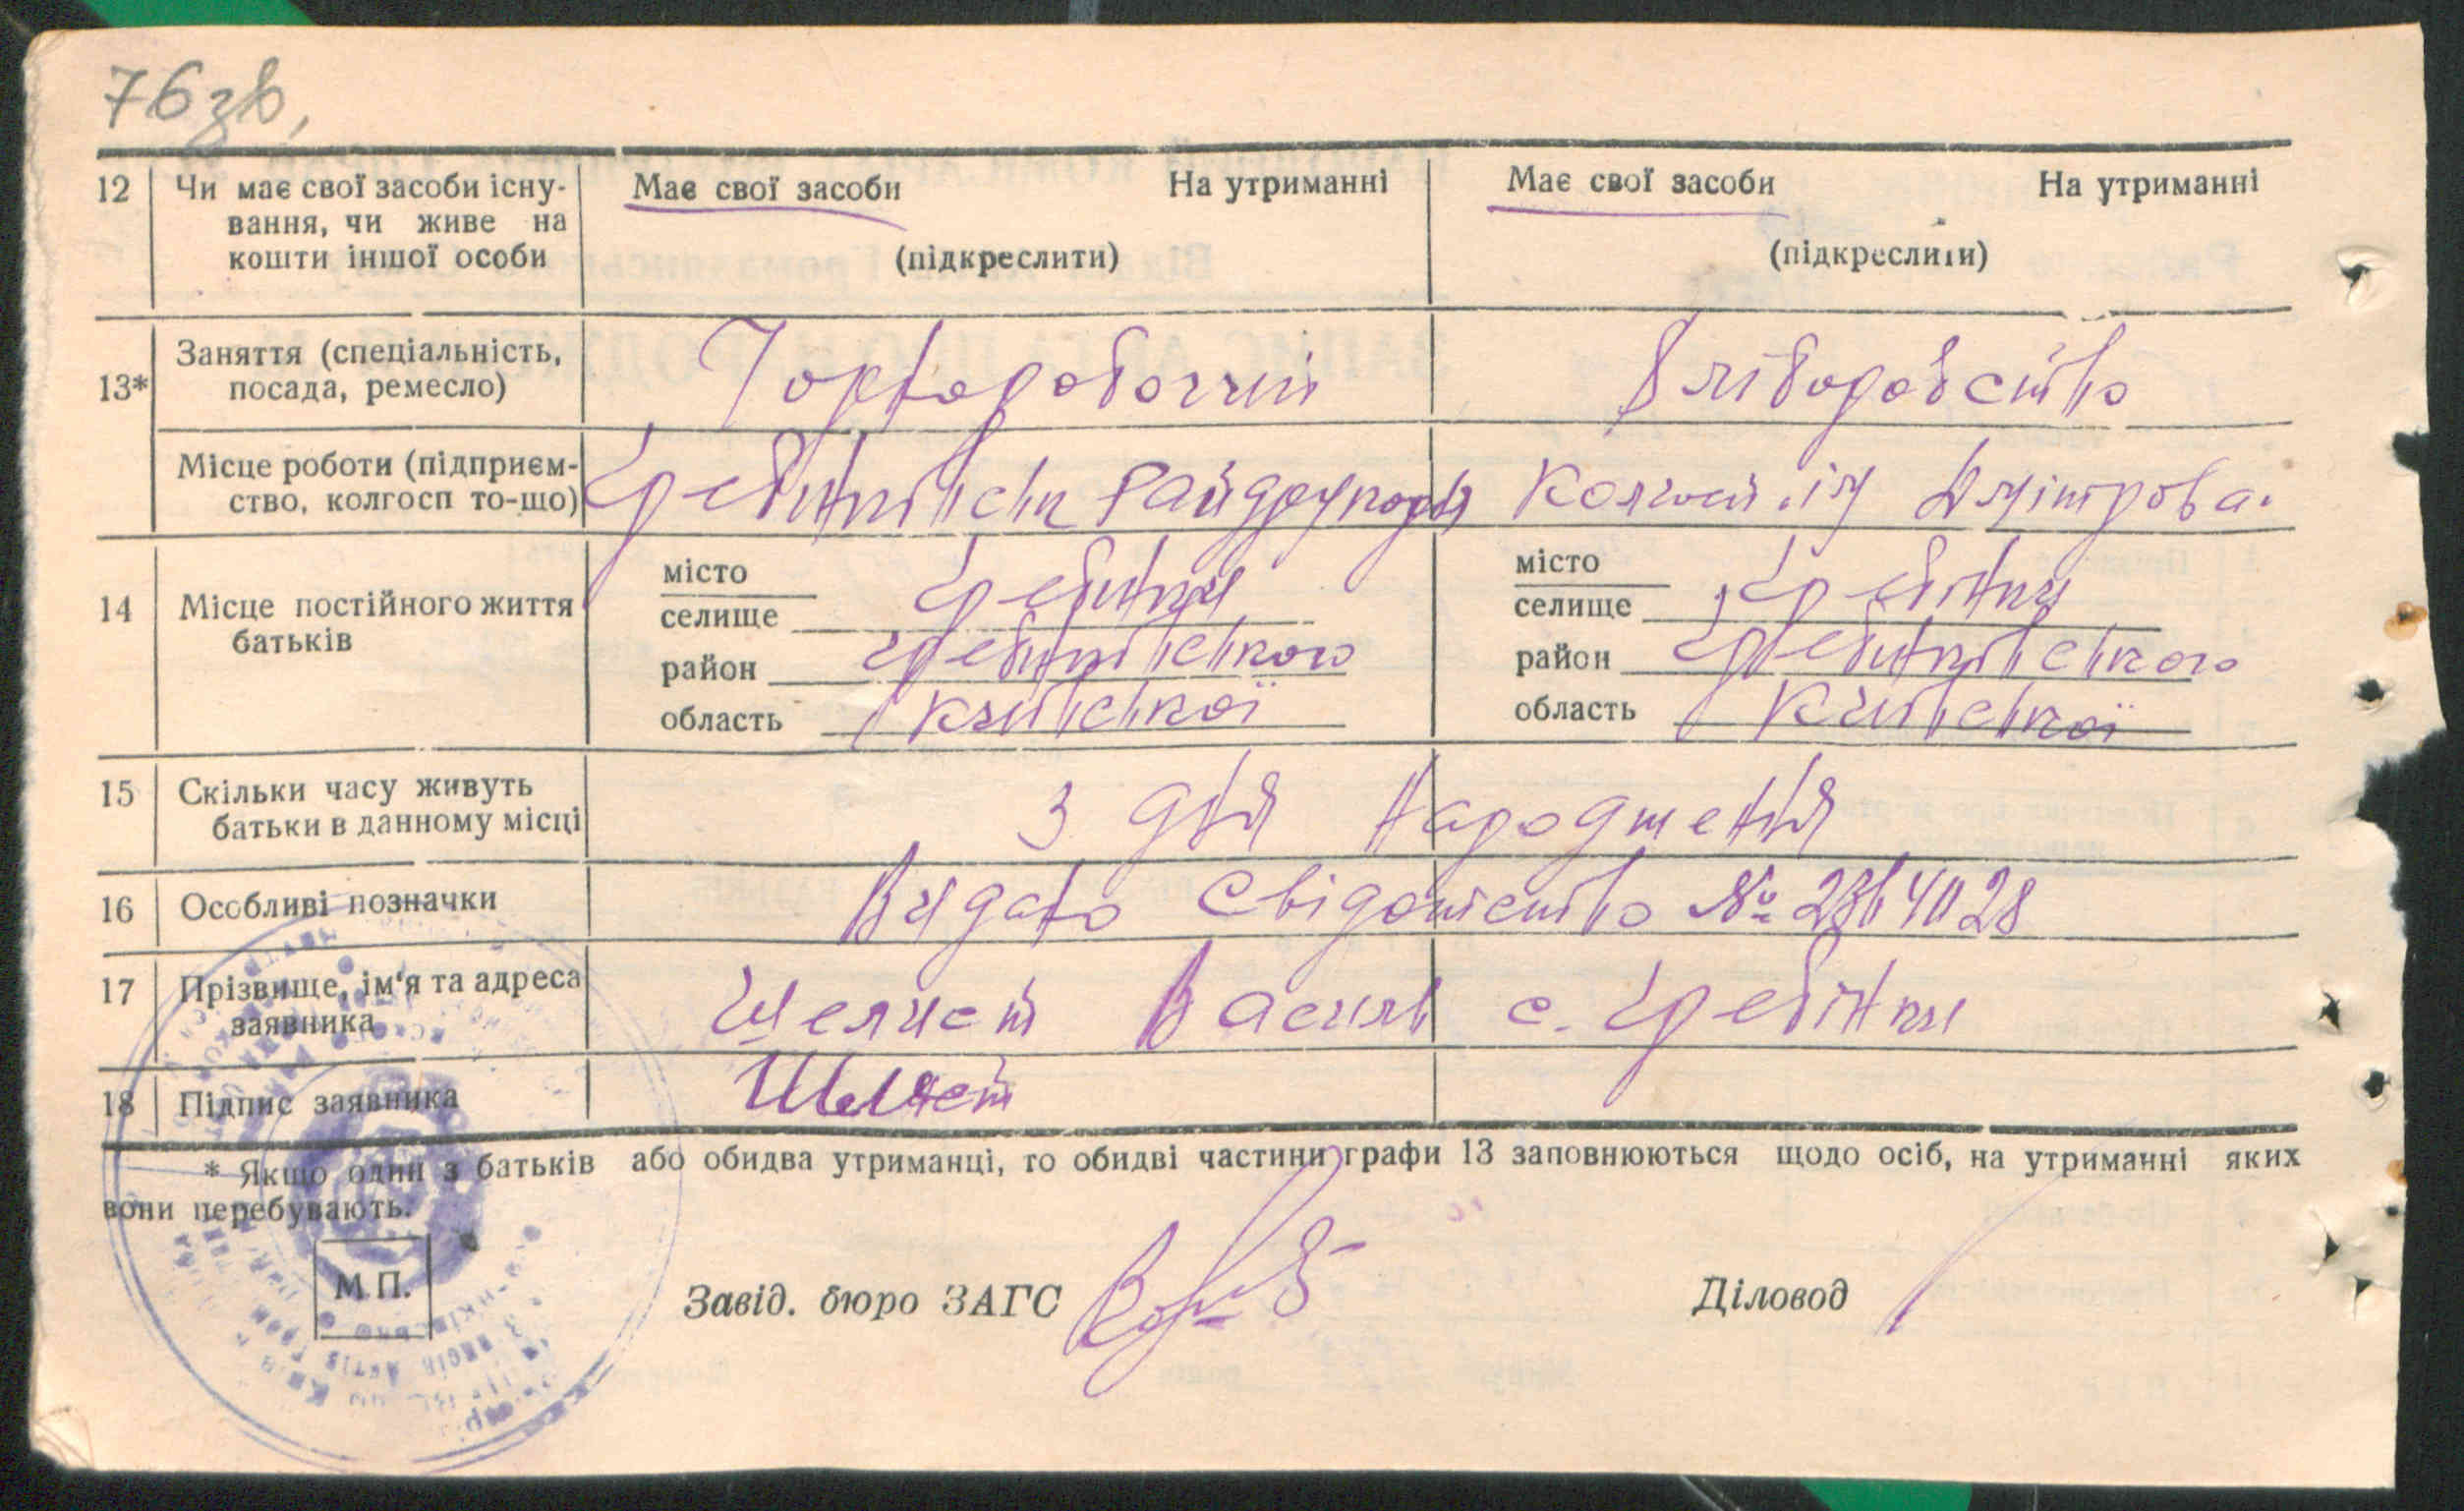 76 зв,
12 Чи має свої засоби існу- Має свої засоби На утриманні Має свої засоби На утриманні
вання, чи живе на
кошти іншої особи (підкреслити) (підкреслити)
13* Заняття (спеціальність, Торфоробочий Хліборобство
посада, ремесло)
Місце роботи (підприєм- Гребінківськ Райдрукарня Колгосп ім Дмітрова.
ство, колгосп то-що)
14 Місце постійного життя місто Гребінки місто Гребінки
батьків селище селище
район Гребінківського район Гребінківського
область Київської область Київської
15 Скільки часу живуть З дня народження
батьки в данному місці
16 Особливі позначки Видано Свідотство №
17 Прізвище, ім'я та адреса Шелест Василь с. Гребінки
заявника
18 Підпис заявника Шелест
* Якщо один з батьків або обидва утриманці, то обидві частини графи 13 заповнюються щодо осіб, на утриманні яких
вони перебувають.
М П. Завід. бюро ЗАГС Діловод